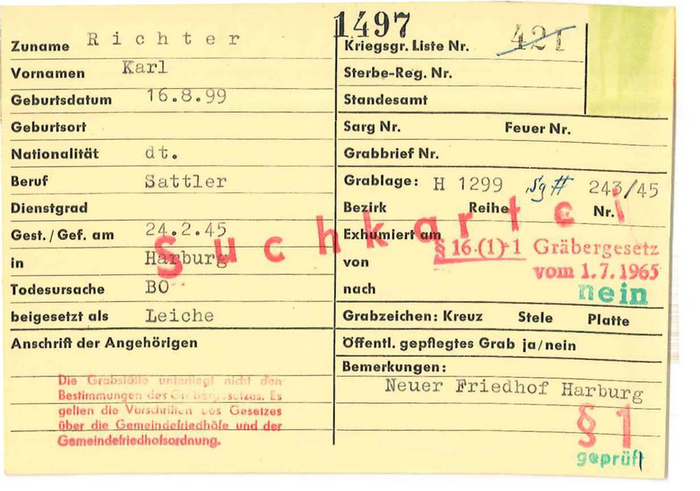 1497
Zuname Richter
Vornamen Karl
Geburtsdatum 16.8.99
Geburtsort
Nationalität dt.
Beruf Sattler
Dienstgrad
Gest./Gef. am 24.2.45
in Harburg
Todesursache BO
beigesetzt als Leiche
Anschrift der Angehörigen
Die Grabstätte unterliegt nicht den
Bestimmungen des Gräbergesetzes. Es
gelten die Vorschriften des Gesetzes
über die Gemeindefriedhöfe und der
Gemeindefriedhofsordnung.
Suchkartei
Kriegsgr. Liste Nr. 421
Sterbe-Reg. Nr.
Standesamt
Sarg Nr. Feuer Nr.
Grabbrief Nr.
Grablage: H 1299 243/45
Bezirk Reihe Nr.
Exhumiert am
§ 16 (1) 1 Gräbergesetz
von vom 1.7.1965
nach nein
Grabzeichen: Kreuz Stele Platte
Öffentl. gepflegtes Grab ja/nein
Bemerkungen:
Neuer Friedhof Harburg
§ 1
geprüft